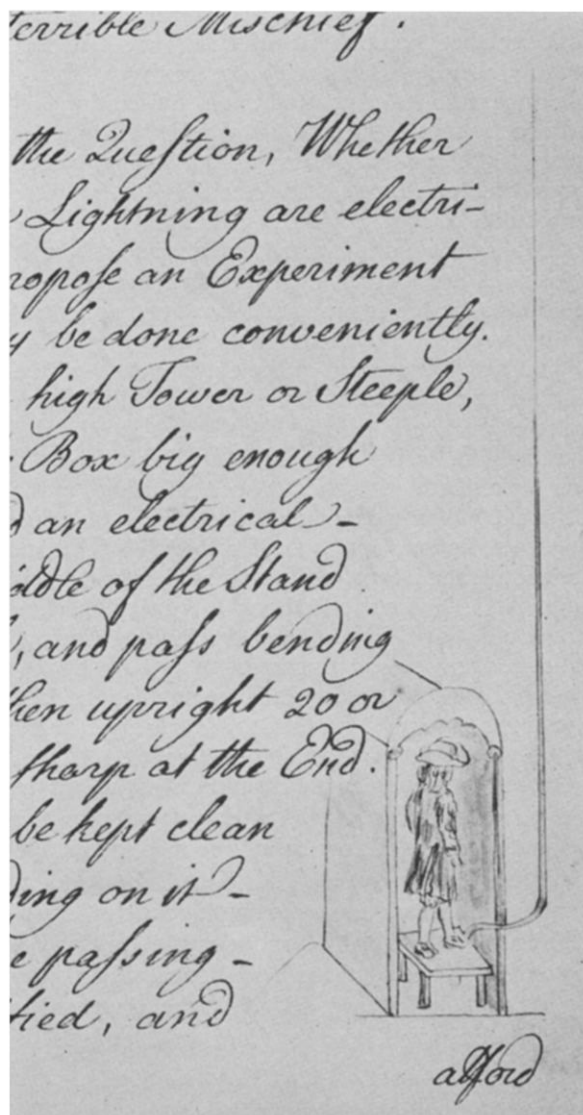 terrible Mischief.
the Queſtion, Whether
Lightning are electri-
ropoſe an Experiment
y be done conveniently.
high Tower or Steeple,
Box big enough
d an electrical-
iddle of the Stand
, and paſs bending
hen upright 20 or
ſharp at the End.
be kept clean
ding on it-
e paſsing-
fied, and
afford